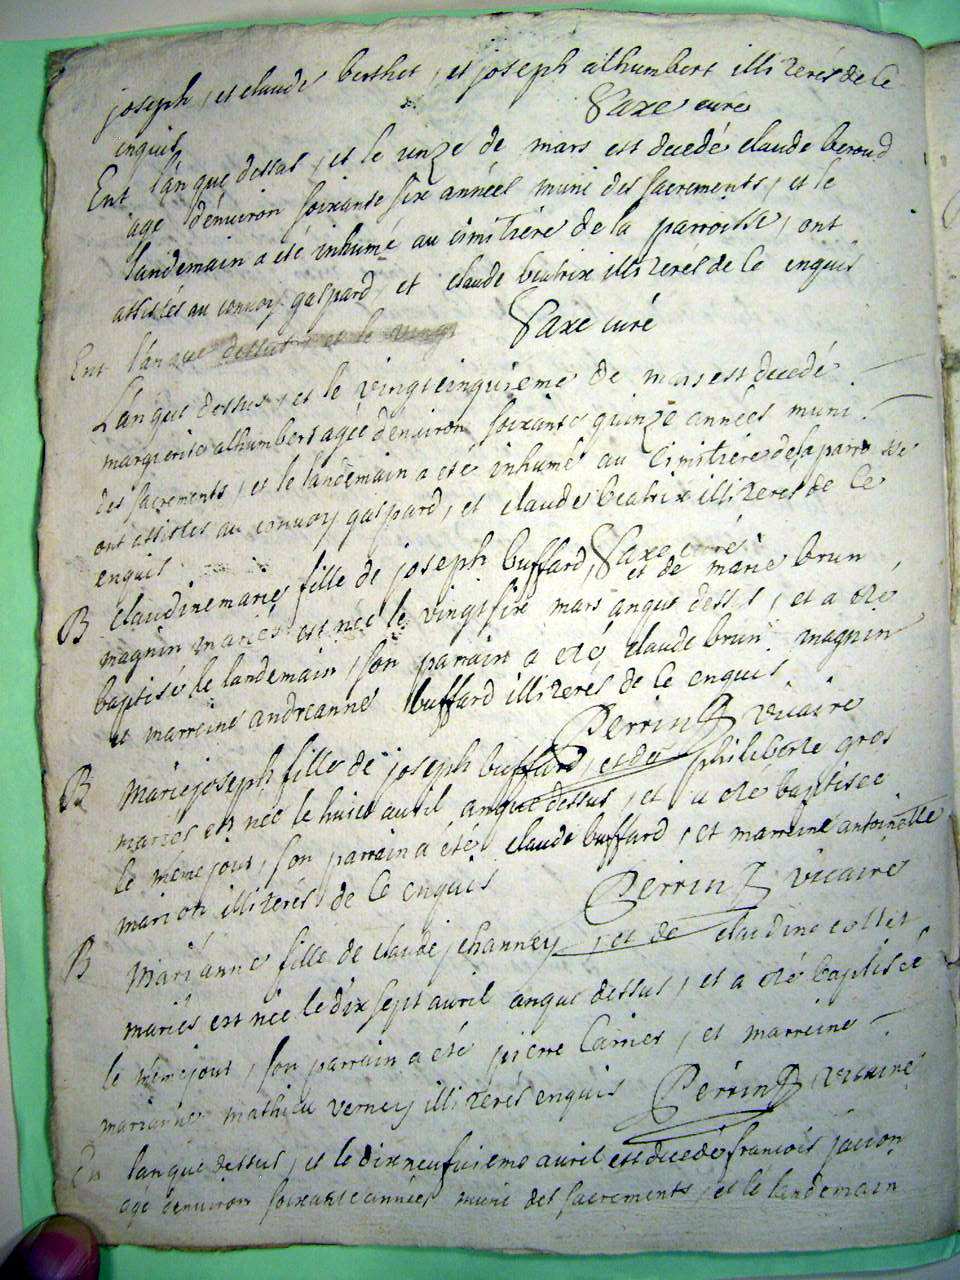 joseph, et claude berthet, et joseph alhumbert illiterés de ce
enquis Saxe curé
Ent l'anque dessus, et le unze de mars est decedé claude beroud
agé d'environ soixante six années muni des sacrements, et le
landemain a été inhumé au cimitière de la parroisse, ont
assistés au convoy gaspard, et claude beatrix illiterés de ce enquis
Saxe curé
Ent l'anque dessus et le vingt
L'anque dessus, et le vingtcinquieme de mars est decedé
marguerite alhumbert agée d'environ soixante quinze années muni
des sacrements, et le landemain a eté inhumé au cimitière de la parroisse
ont assistés au convoy gaspard, et claude beatrix illiterés de ce
enquis Saxe curé
B Claudinemarie fille de joseph buffard, et de marie brun
magnin mariés est née le vingtsix mars anque dessus, et a eté
baptisée le landemain, son parrain a eté claude brun magnin
et marreine andreanne buffard illiterés de ce enquis
Perrin vicaire
B Mariejoseph fille de joseph buffard, et de philiberte gros
mariés est née le huict auril anque dessus, et a eté baptisée
le mêmejour, son parrain a été claude buffard, et marreine antoinette
marion illiterés de ce enquis Perrin vicaire
B Marianne fille de claude channey, et de claudine collet
mariés est née le dix sept auril anque dessus, et a eté baptisée
le mêmejour, son parrain a eté pierre Carrier, et marreine
marianne mathieu verney illiterés enquis Perrin vicaire
En l'anque dessus, et le dixneufuieme auril est decedé francois jacion
agé d'environ soixante années muni des sacrements, et le landemain